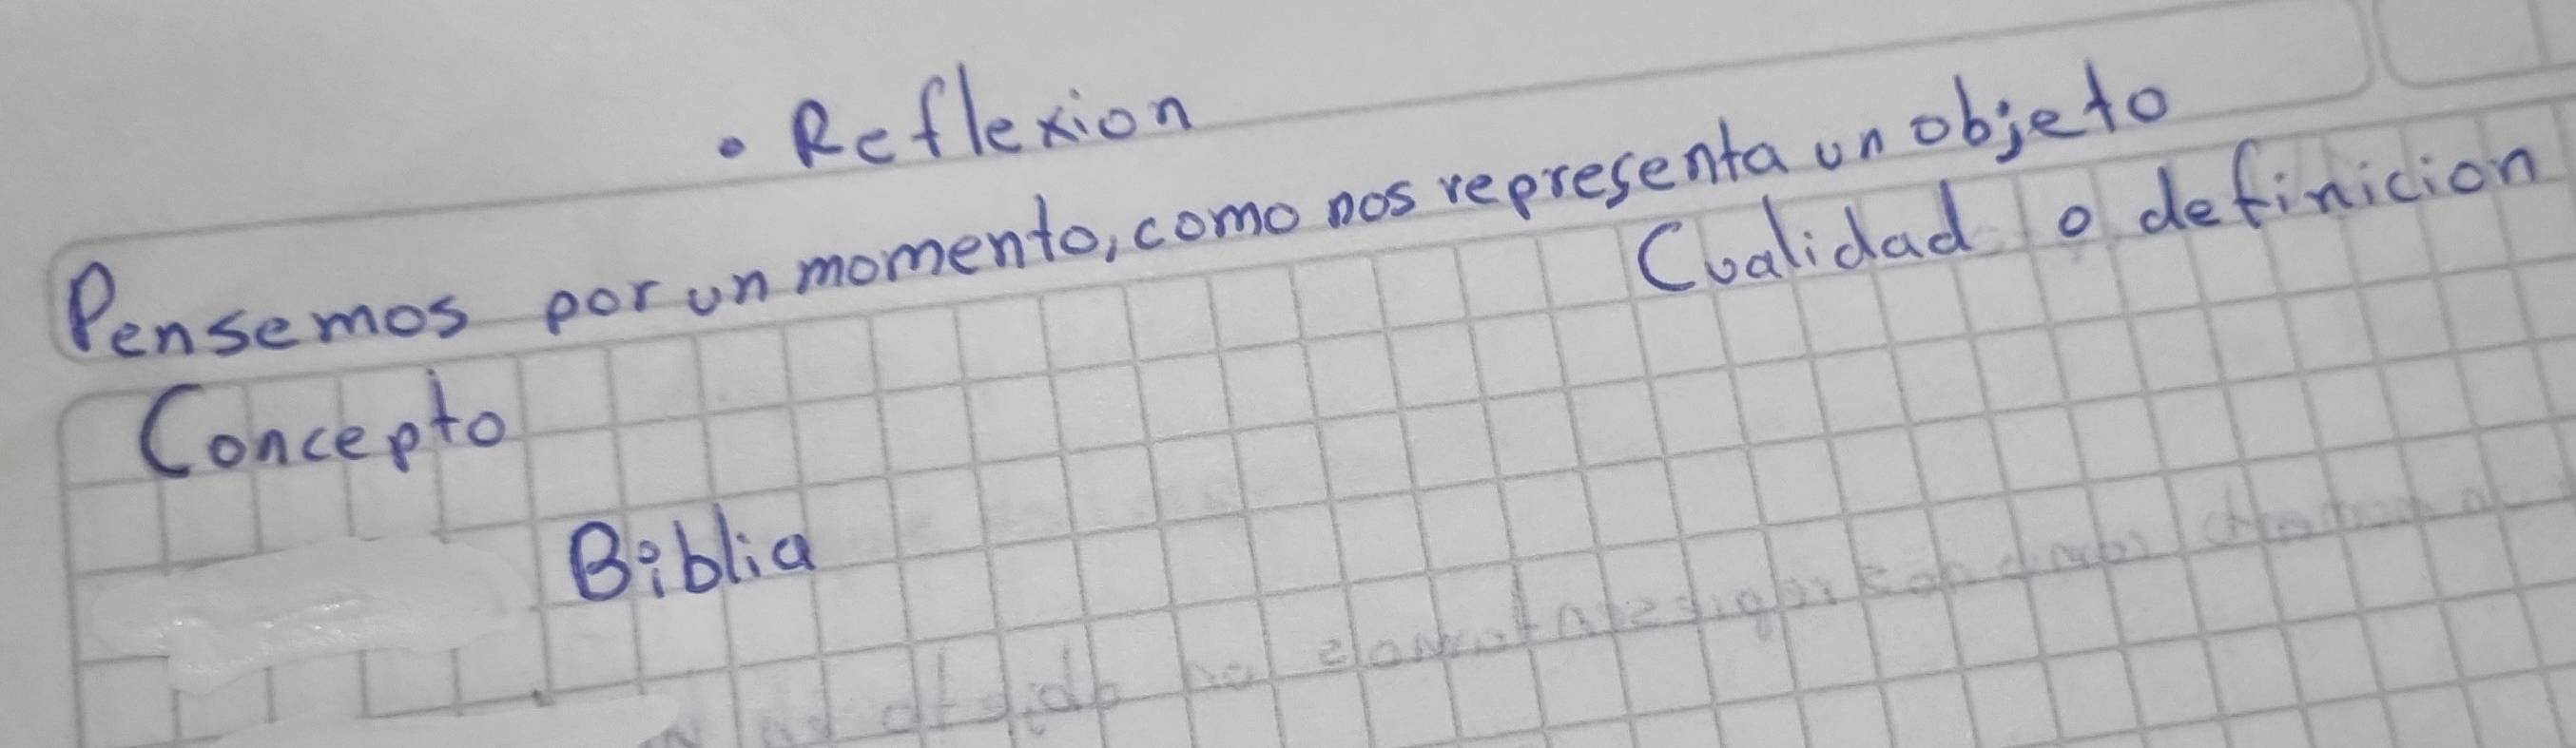 • Reflexion
Pensemos por un momento, como nos representa un objeto
Concepto Cualidad o definicion
Biblia